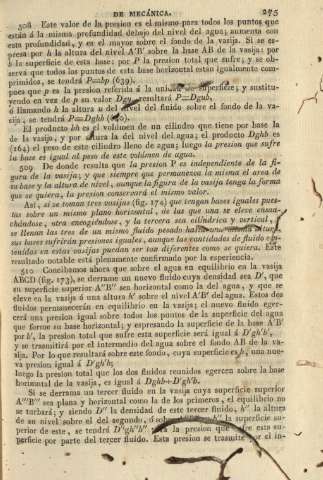 DE MECÁNICA. 275
508 Este valor de la presion es el mismo para todos los puntos que
están á la misma profundidad debajo del nivel del agua; aumenta con
esta profundidad, y es el mayor sobre el fondo de la vasija. Si se ex-
presa por h la altura del nivel A'B' sobre la base AB de la vasija; por
b la superficie de esta base; por P la presion total que sufre; y se ob-
serva que todos los puntos de esta base horizontal estan igualmente com-
primidos, se tendrá P=bp (639).
pues que p es la presion referida á la de superficie; y sustitu-
yendo en vez de p su valor Dgu, resultará P=Dgub,
ó llamando h la altura del nivel del fluido sobre el fondo de la va-
sija, se tendrá P=Dghb
El producto bh es el volúmen de un cilindro que tiene por base la
de la vasija, y por altura la del nivel del agua; el producto Dghb es
(164) el peso de este cilindro lleno de agua; luego la presion que sufre
la base es igual al peso de este volúmen de agua.
509 De donde resulta que la presion P es independiente de la fi-
gura de la vasija; y que siempre que permanezca la misma el area de
su base y la altura de nivel, aunque la figura de la vasija tenga la forma
que se quiera, la presion conservará el mismo valor.
Asi, si se toman tres vasijas (fig. 174) que tengan bases iguales pues-
tas sobre un mismo plano horizontal, de las que una se eleve ensan-
chándose, otra encogiéndose, y la tercera sea cilíndrica y vertical, y
se llenan las tres de un mismo fluido pesado
sus bases sufrirán presiones iguales, aunque las cantidades de fluido con-
tenidas en estas vasijas puedan ser tan diferentes como se quiera. Este
resultado notable está plenamente confirmado por la esperiencia.
510 Concibamos ahora que sobre el agua en equilibrio en la vasija
ABCD (fig. 173), se derrame un nuevo fluido cuya densidad sea D', que
su superficie superior A''B'' sea horizontal como la del agua, y que se
eleve en la vasija á una altura h' sobre el nivel A'B' del agua. Estos dos
fluidos permanecerán en equilibrio en la vasija; el nuevo fluido ejer-
cerá una presion igual sobre todos los puntos de la superficie del agua
que forme su base horizontal; y espresando la superficie de la base A'B'
por b', la presion total que sufre esta superficie será igual á D'gh'b',
y se transmitirá por el intermedio del agua sobre el fondo AB de la va-
sija. Por lo que resultará sobre este fondo, cuya superficie es b, una nue-
va presion igual á D'gh'b;
luego la presion total que los dos fluidos egercen sobre la base
horizontal de la vasija, es igual á Dghb+D'gh'b.
Si se derrama un tercer fluido en la vasija cuya superficie superior
A'''B''' sea plana y horizontal como la de los primeros, el equilibrio no
se turbará; y siendo D'' la densidad de este tercer fluido, h'' la altura
de su nivel sobre el del segundo, ó sobre y b'' la superficie su-
perior de este, se tendrá D''gh''b'' la presion que sufre esta su-
perficie por parte del tercer fluido. Esta presion se trasmite por el in-